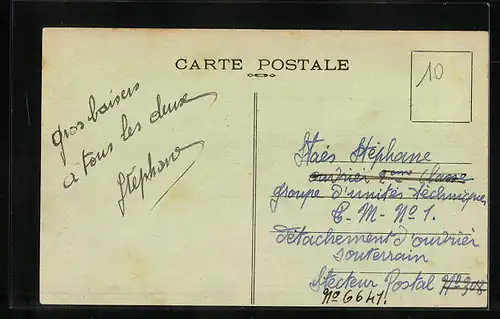 CARTE POSTALE
10
gros baisers
à tous les deux
Stéphane
Staés Stéphane
ouvrier 2ème Classe
groupe d'unités téchniques
E-M-No 1.
Détachement d'ouvrier
souterrain
Stecteur Postal No 308
No 6641.